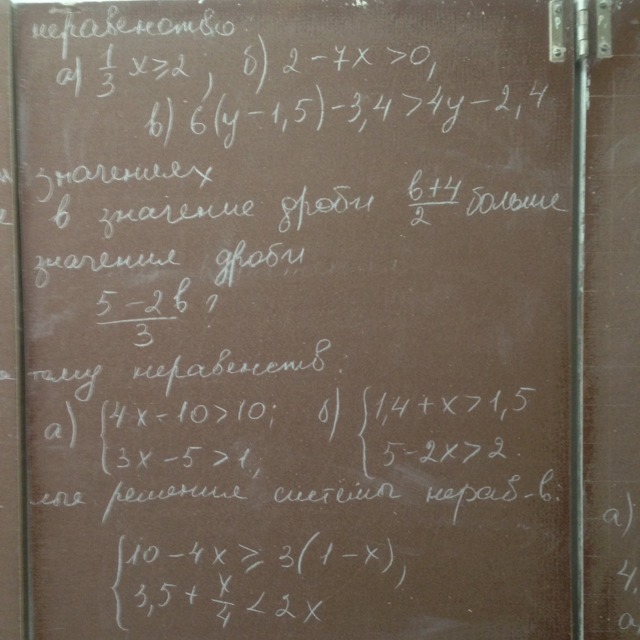 неравенство:
а) 1/3 x ≥ 2, б) 2 - 7x > 0,
в) 6(y - 1,5) - 3,4 > 4y - 2,4
значениях
в значение дроби (в+4)/2 больше
значения дроби
(5 - 2в)/3 ?
тему неравенств.
а) { 4x - 10 > 10; б) { 1,4 + x > 1,5
3x - 5 > 1, 5 - 2x > 2
решения системы нерав-в.
{ 10 - 4x ≥ 3(1 - x),
3,5 + x/4 < 2x
а)
4,